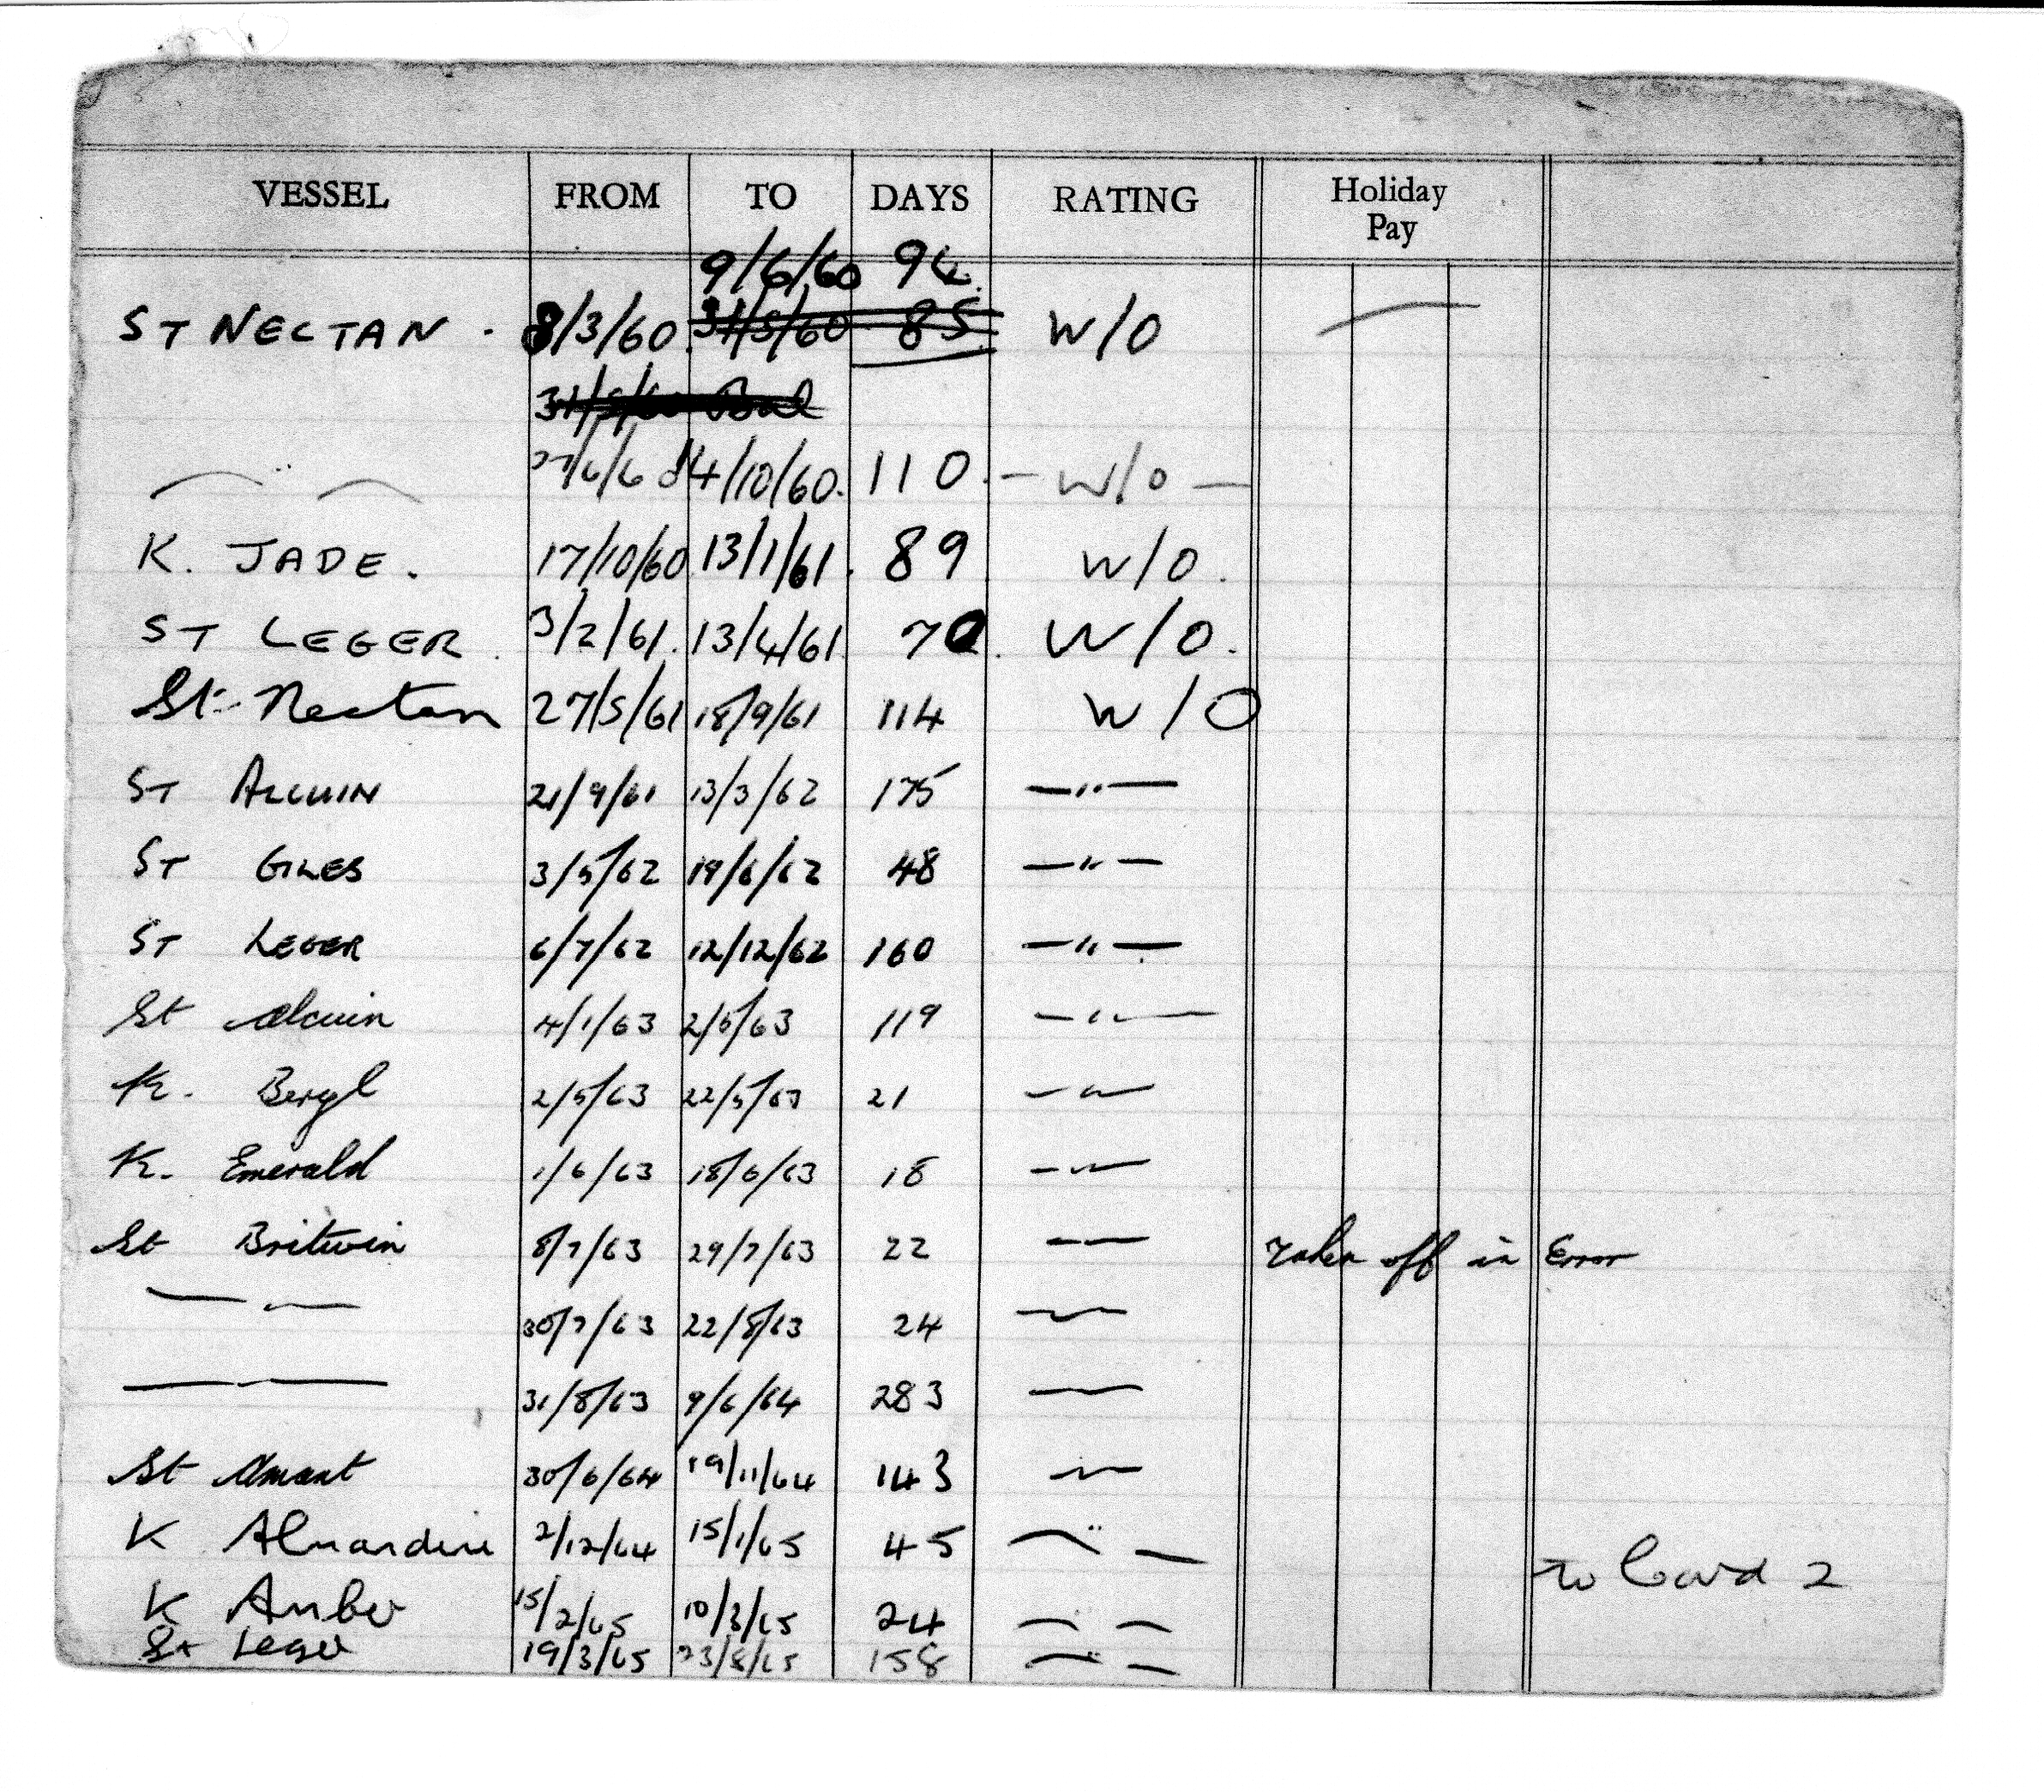 VESSEL FROM TO DAYS RATING Holiday Pay
9/6/60 94
ST NECTAN . 8/3/60 31/5/60 85 W/O
31/5/60
— " — 27/6/60 14/10/60. 110. — W/O —
K. JADE. 17/10/60 13/1/61. 89 W/O.
ST LEGER. 3/2/61. 13/4/61. 70. W/O.
St. Nectan 27/5/61 18/9/61 114 W/O
ST ALCUIN 21/9/61 13/3/62 175 — " —
ST GILES 3/5/62 19/6/62 48 — " —
ST LEGER 6/7/62 12/12/62 160 — " —
St Alcuin 4/1/63 2/5/63 119 — " —
K. Beryl 2/5/63 22/5/63 21 — " —
K. Emerald 1/6/63 18/6/63 18 — " —
St Britwin 8/7/63 29/7/63 22 — " — Taken off in Error
— " — 30/7/63 22/8/63 24 — " —
— " — 31/8/63 9/6/64 283 — " —
St Amant 30/6/64 19/11/64 143 — " —
K Almandine 2/12/64 15/1/65 45 — " —
To Card 2
K Amber 15/2/65 10/3/65 24 — " —
St Leger 19/3/65 23/8/65 158 — " —